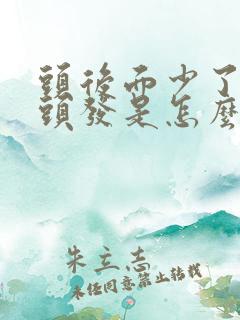 頭後面少了
頭發是怎麼
朱立志
未经同意禁止转载